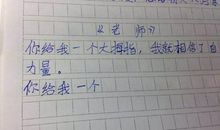 《老 师》
你给我一个大拇指，我就相信了自
力量。
你给我一个